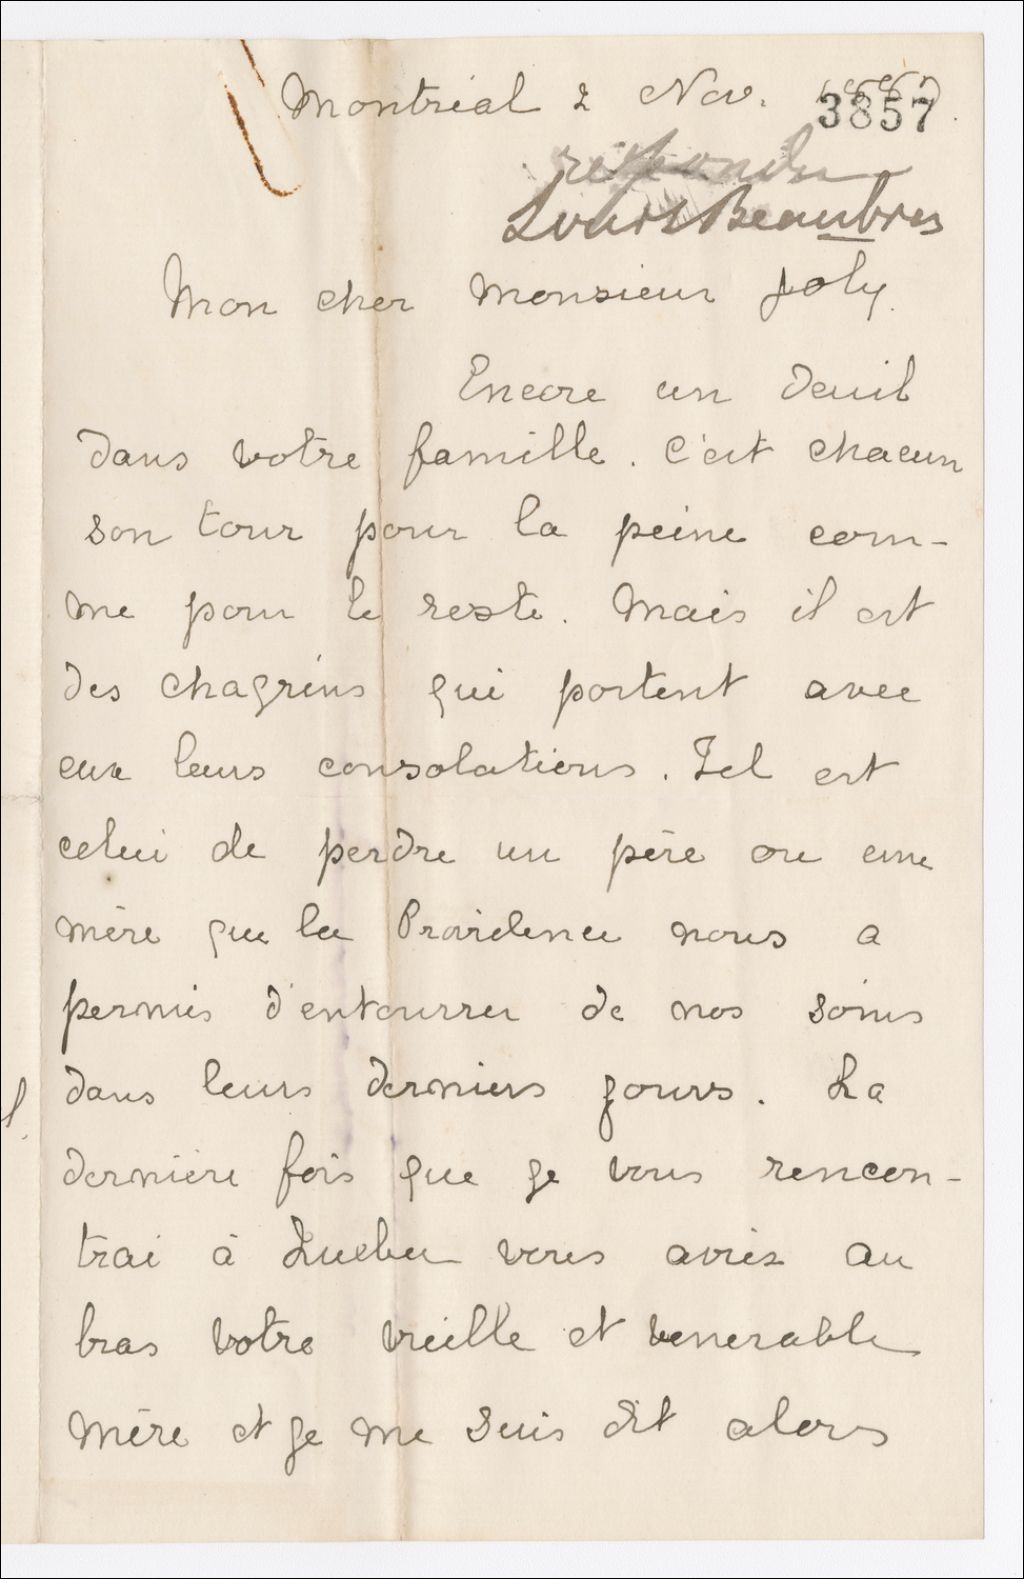 Montréal 2 Nov.
3857
répondu
Louis Beaubien
Mon cher Monsieur Joly.
Encore un deuil
dans votre famille. C'est chacun
son tour pour la peine com-
me pour le reste. Mais il est
des chagrins qui portent avec
eux leurs consolations. Tel est
celui de perdre un père ou une
mère que la Providence nous a
permis d'entourrer de nos soins
dans leurs derniers jours. La
dernière fois que je vous rencon-
trai à Quebec vous aviez au
bras votre vieille et venerable
mère et je me suis dit alors